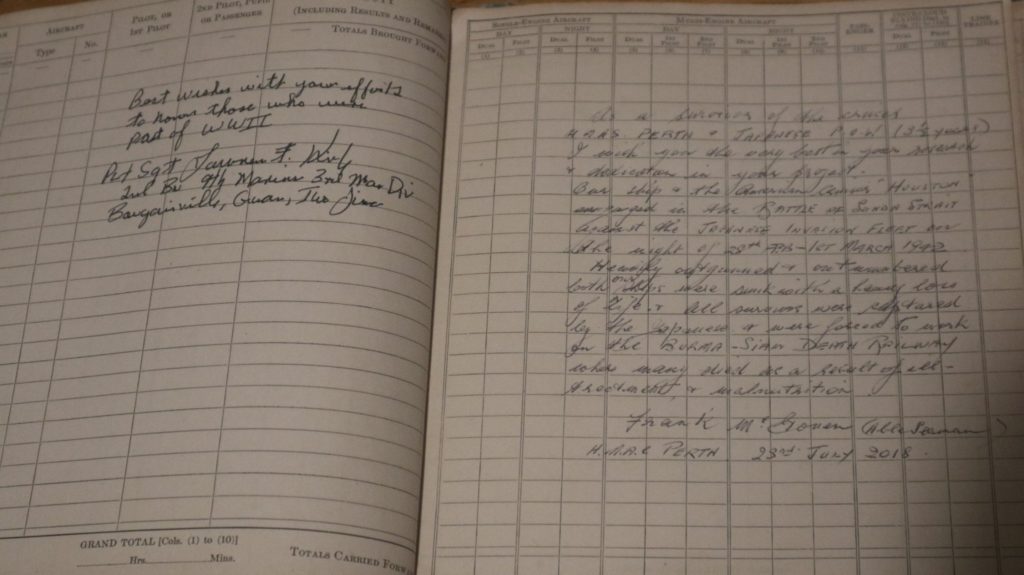 AIRCRAFT
Type No.
PILOT, OR
1ST PILOT
2ND PILOT, PUPIL
OR PASSENGER
(INCLUDING RESULTS AND REMARKS
TOTALS BROUGHT FORW
Best wishes with your efforts
to honor those who were
part of WWII
Plt Sgt F.
2nd Bn 9th Marines 3rd Mar Div
Bougainville, Guam, Iwo Jima
GRAND TOTAL [Cols. (1) to (10)]
Hrs. Mins.
TOTALS CARRIED FORW
SINGLE-ENGINE AIRCRAFT MULTI-ENGINE AIRCRAFT
DAY NIGHT DAY NIGHT
DUAL PILOT DUAL PILOT DUAL 1ST PILOT 2ND PILOT DUAL 1ST PILOT 2ND PILOT
As a survivor of the cruiser
H.M.A.S PERTH & JAPANESE P.O.W (3½ years)
I wish you the very best in your research
& dedication in your project.
Our ship & the American cruiser HOUSTON
engaged in the BATTLE of SUNDA STRAIT
against the JAPANESE INVASION FLEET on
the night of 28th FEB - 1ST MARCH 1942
Heavily outgunned & outnumbered
both our ships were sunk with a heavy loss
of life & all survivors were captured
by the Japanese & were forced to work
on the BURMA-SIAM DEATH RAILWAY
where many died as a result of ill-
treatment & malnutrition.
Frank McGovern (Able Seaman)
H.M.A.S PERTH 23rd JULY 2018.